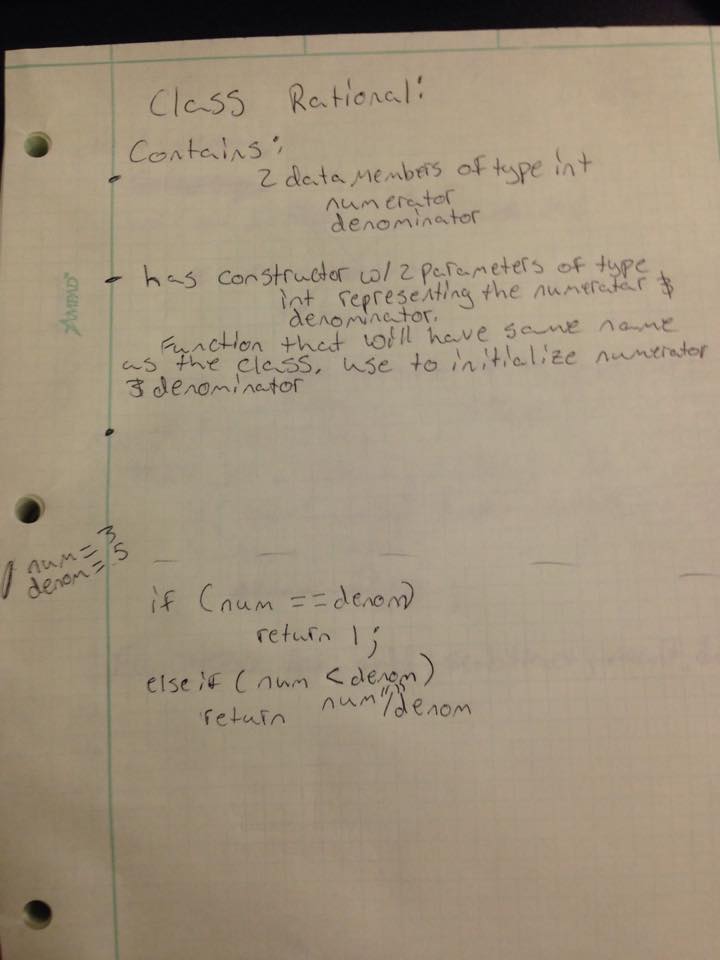 Class Rational:
Contains:
2 data members of type int
numerator
denominator
AMPAD
- has constructor w/ 2 parameters of type
int representing the numerator &
denominator.
Function that will have same name
as the class, use to initialize numerator
& denominator
num = 3
denom = 5
if (num == denom)
return 1;
else if (num < denom)
return num"/"denom